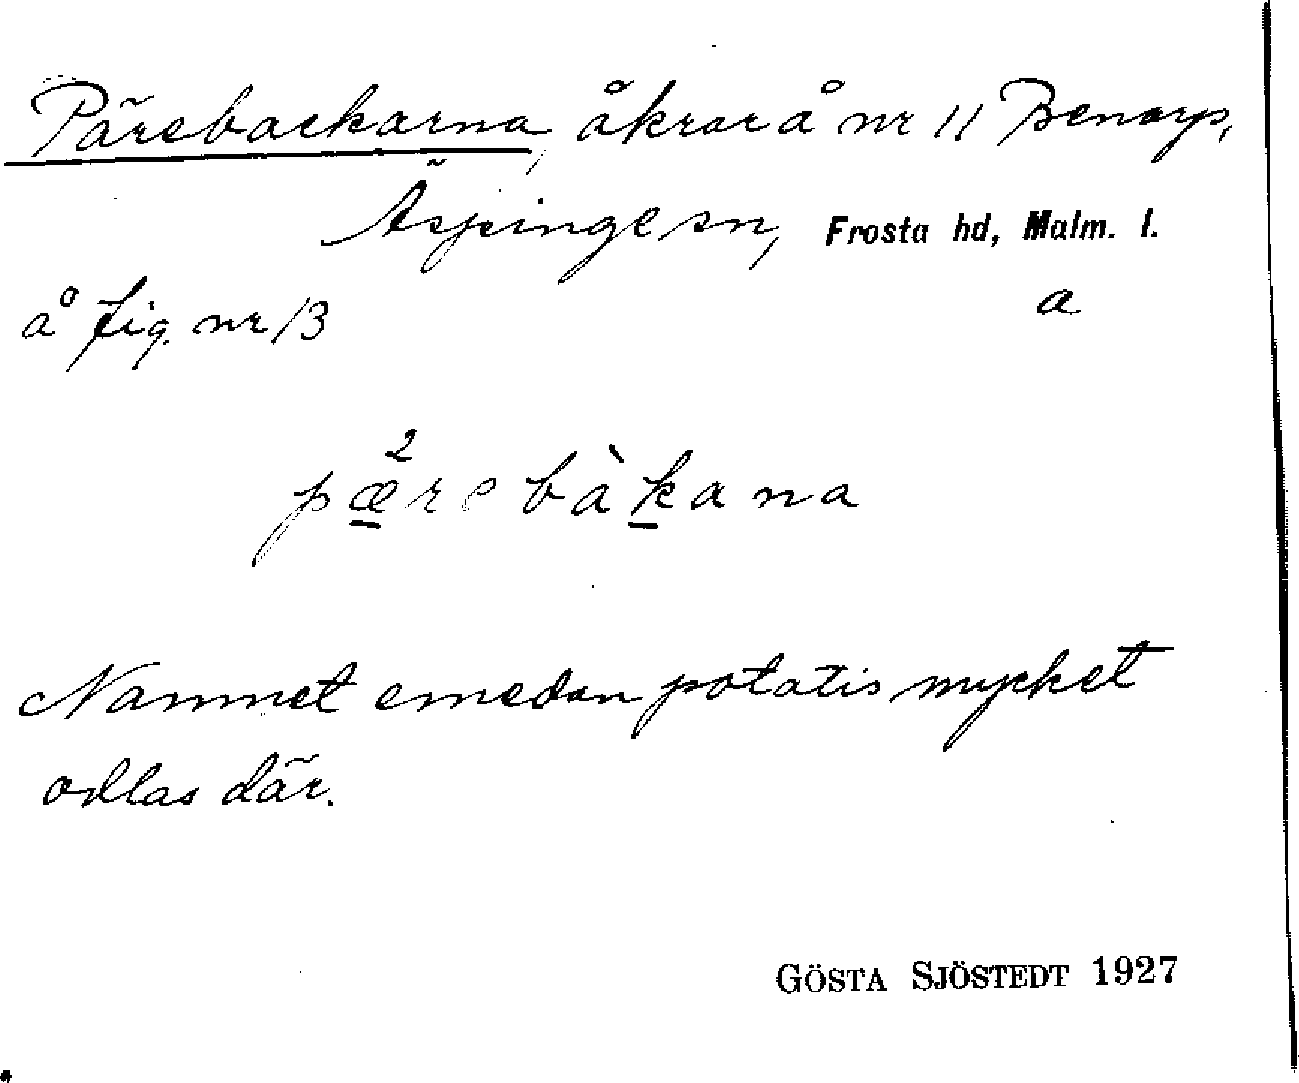 Pärebackarna, åkrar å nr 11 Benarp,
Äspinge sn, Frosta hd, Malm. l.
å fig. nr 13 a
pæ²rebàkana
Namnet emedan potatis mycket
odlas där.
GÖSTA SJÖSTEDT 1927